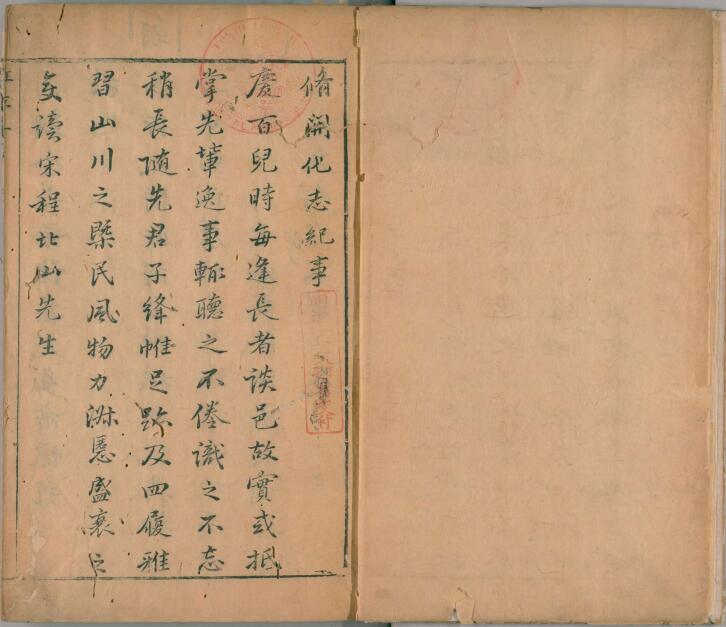 脩開化志紀事
慶百兒時每逢長者談邑故實或抵
掌先輩逸事輙聽之不倦識之不忘
稍長隨先君子絳帷足跡及四履雅
習山川之槩民風物力淋慝盛衰之
变讀宋程北山先生